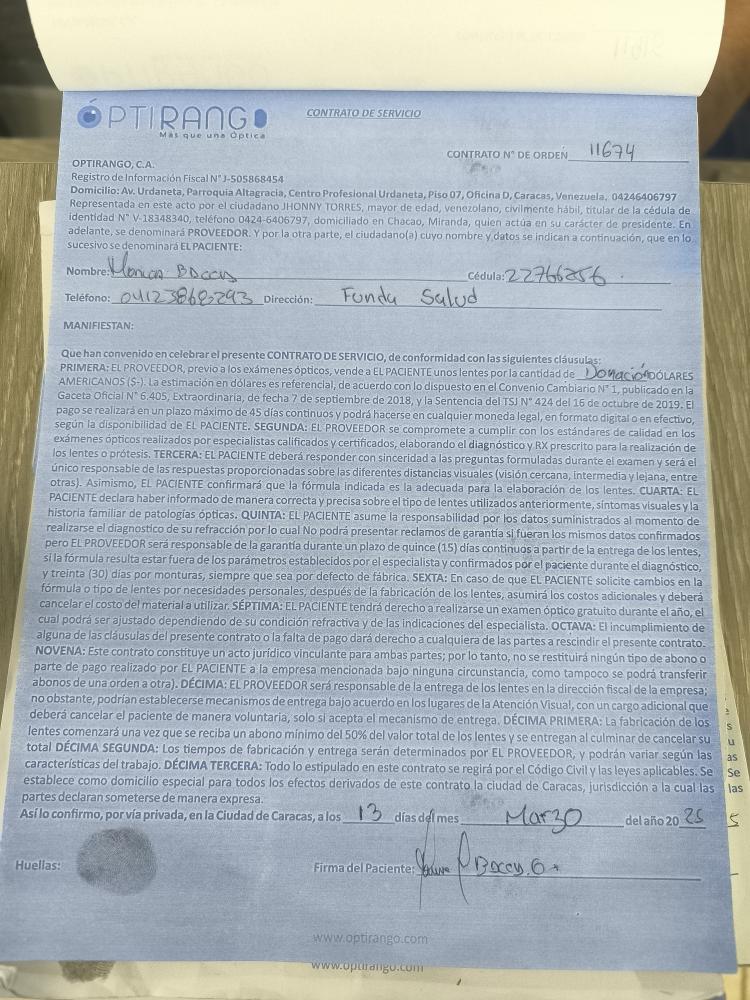 ÓPTIRANGO
Más que una Óptica
CONTRATO DE SERVICIO
CONTRATO N° DE ORDEN 11674
OPTIRANGO, C.A.
Registro de Información Fiscal N° J-505868454
Domicilio: Av. Urdaneta, Parroquia Altagracia, Centro Profesional Urdaneta, Piso 07, Oficina D, Caracas, Venezuela, 04246406797
Representada en este acto por el ciudadano JHONNY TORRES, mayor de edad, venezolano, civilmente hábil, titular de la cédula de
identidad N° V-18348340, teléfono 0424-6406797, domiciliado en Chacao, Miranda, quien actúa en su carácter de presidente. En
adelante, se denominará PROVEEDOR. Y por la otra parte, el ciudadano(a) cuyo nombre y datos se indican a continuación, que en lo
sucesivo se denominará EL PACIENTE:
Nombre: Cédula: 22766256
Teléfono: Dirección: Funda Salud
MANIFIESTAN:
Que han convenido en celebrar el presente CONTRATO DE SERVICIO, de conformidad con las siguientes cláusulas:
PRIMERA: EL PROVEEDOR, previo a los exámenes ópticos, vende a EL PACIENTE unos lentes por la cantidad de Donación DÓLARES
AMERICANOS ($-). La estimación en dólares es referencial, de acuerdo con lo dispuesto en el Convenio Cambiario N° 1, publicado en la
Gaceta Oficial N° 6.405, Extraordinaria, de fecha 7 de septiembre de 2018, y la Sentencia del TSJ N° 424 del 16 de octubre de 2019. El
pago se realizará en un plazo máximo de 45 días continuos y podrá hacerse en cualquier moneda legal, en formato digital o en efectivo,
según la disponibilidad de EL PACIENTE. SEGUNDA: EL PROVEEDOR se compromete a cumplir con los estándares de calidad en los
exámenes ópticos realizados por especialistas calificados y certificados, elaborando el diagnóstico y RX prescrito para la realización de
los lentes o prótesis. TERCERA: EL PACIENTE deberá responder con sinceridad a las preguntas formuladas durante el examen y será el
único responsable de las respuestas proporcionadas sobre las diferentes distancias visuales (visión cercana, intermedia y lejana, entre
otras). Asimismo, EL PACIENTE confirmará que la fórmula indicada es la adecuada para la elaboración de los lentes. CUARTA: EL
PACIENTE declara haber informado de manera correcta y precisa sobre el tipo de lentes utilizados anteriormente, síntomas visuales y la
historia familiar de patologías ópticas. QUINTA: EL PACIENTE asume la responsabilidad por los datos suministrados al momento de
realizarse el diagnostico de su refracción por lo cual No podrá presentar reclamos de garantía si fueran los mismos datos confirmados
pero EL PROVEEDOR será responsable de la garantía durante un plazo de quince (15) días continuos a partir de la entrega de los lentes,
si la fórmula resulta estar fuera de los parámetros establecidos por el especialista y confirmados por el paciente durante el diagnóstico,
y treinta (30) días por monturas, siempre que sea por defecto de fábrica. SEXTA: En caso de que EL PACIENTE solicite cambios en la
fórmula o tipo de lentes por necesidades personales, después de la fabricación de los lentes, asumirá los costos adicionales y deberá
cancelar el costo del material a utilizar. SÉPTIMA: EL PACIENTE tendrá derecho a realizarse un examen óptico gratuito durante el año, el
cual podrá ser ajustado dependiendo de su condición refractiva y de las indicaciones del especialista. OCTAVA: El incumplimiento de
alguna de las cláusulas del presente contrato o la falta de pago dará derecho a cualquiera de las partes a rescindir el presente contrato.
NOVENA: Este contrato constituye un acto jurídico vinculante para ambas partes; por lo tanto, no se restituirá ningún tipo de abono o
parte de pago realizado por EL PACIENTE a la empresa mencionada bajo ninguna circunstancia, como tampoco se podrá transferir
abonos de una orden a otra). DÉCIMA: EL PROVEEDOR será responsable de la entrega de los lentes en la dirección fiscal de la empresa;
no obstante, podrían establecerse mecanismos de entrega bajo acuerdo en los lugares de la Atención Visual, con un cargo adicional que
deberá cancelar el paciente de manera voluntaria, solo si acepta el mecanismo de entrega. DÉCIMA PRIMERA: La fabricación de los
lentes comenzará una vez que se reciba un abono mínimo del 50% del valor total de los lentes y se entregan al culminar de cancelar su
total DÉCIMA SEGUNDA: Los tiempos de fabricación y entrega serán determinados por EL PROVEEDOR, y podrán variar según las
características del trabajo. DÉCIMA TERCERA: Todo lo estipulado en este contrato se regirá por el Código Civil y las leyes aplicables. Se
establece como domicilio especial para todos los efectos derivados de este contrato la ciudad de Caracas, jurisdicción a la cual las
partes declaran someterse de manera expresa.
Así lo confirmo, por vía privada, en la Ciudad de Caracas, a los 13 días del mes Marzo del año 20 25
Huellas:
Firma del Paciente:
www.optirango.com
www.optirango.com